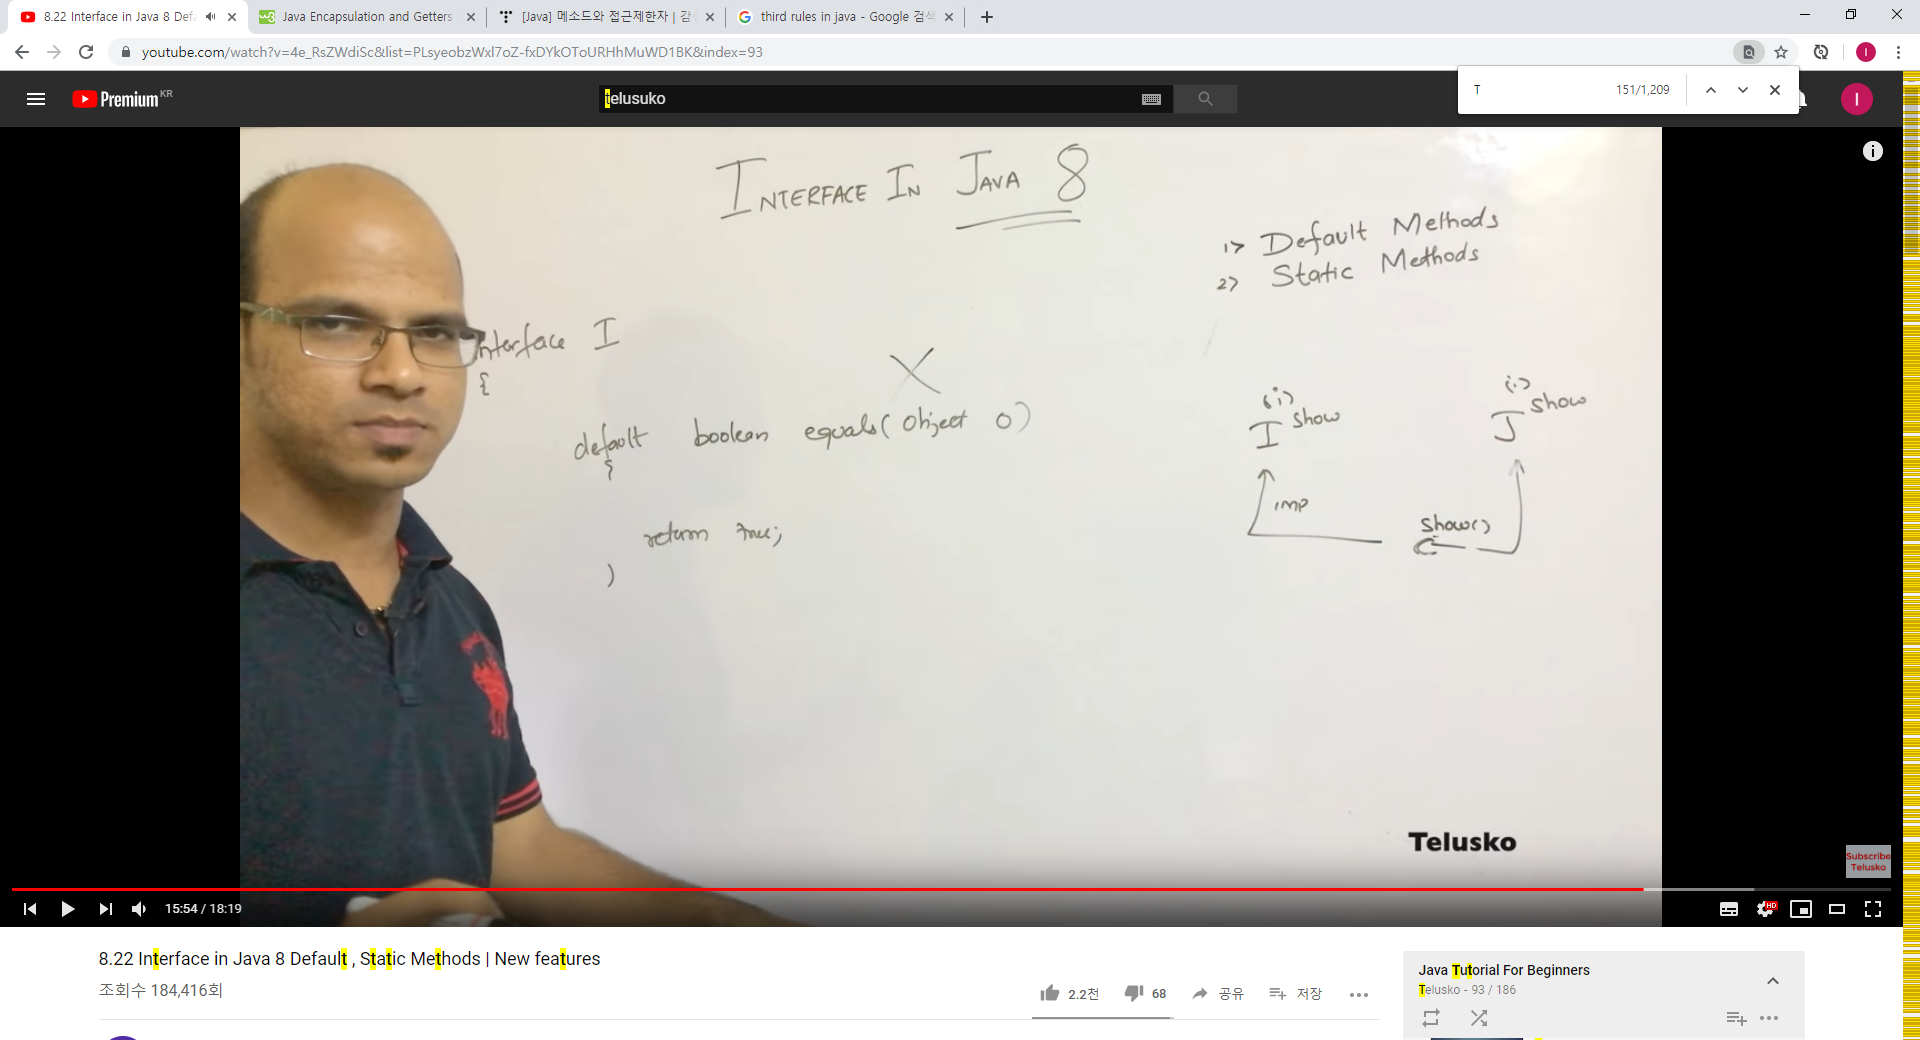 8.22 Interface in Java 8 Defa
Java Encapsulation and Getters
[Java] 메소드와 접근제한자 | 감
third rules in java - Google 검색
youtube.com/watch?v=4e_RsZWdiSc&list=PLsyeobzWxl7oZ-fxDYkOToURHhMuWD1BK&index=93
T
151/1,209
Premium KR
telusuko
I
INTERFACE IN JAVA 8
1> Default Methods
2> Static Methods
nterface I
{
default boolean equals(Object o)
{
return true;
}
X
(i) (i)
I show J show
imp
show()
C
Telusko
Subscribe
Telusko
15:54 / 18:19
HD
8.22 Interface in Java 8 Default , Static Methods | New features
조회수 184,416회
2.2천 68 공유 저장
Java Tutorial For Beginners
Telusko - 93 / 186